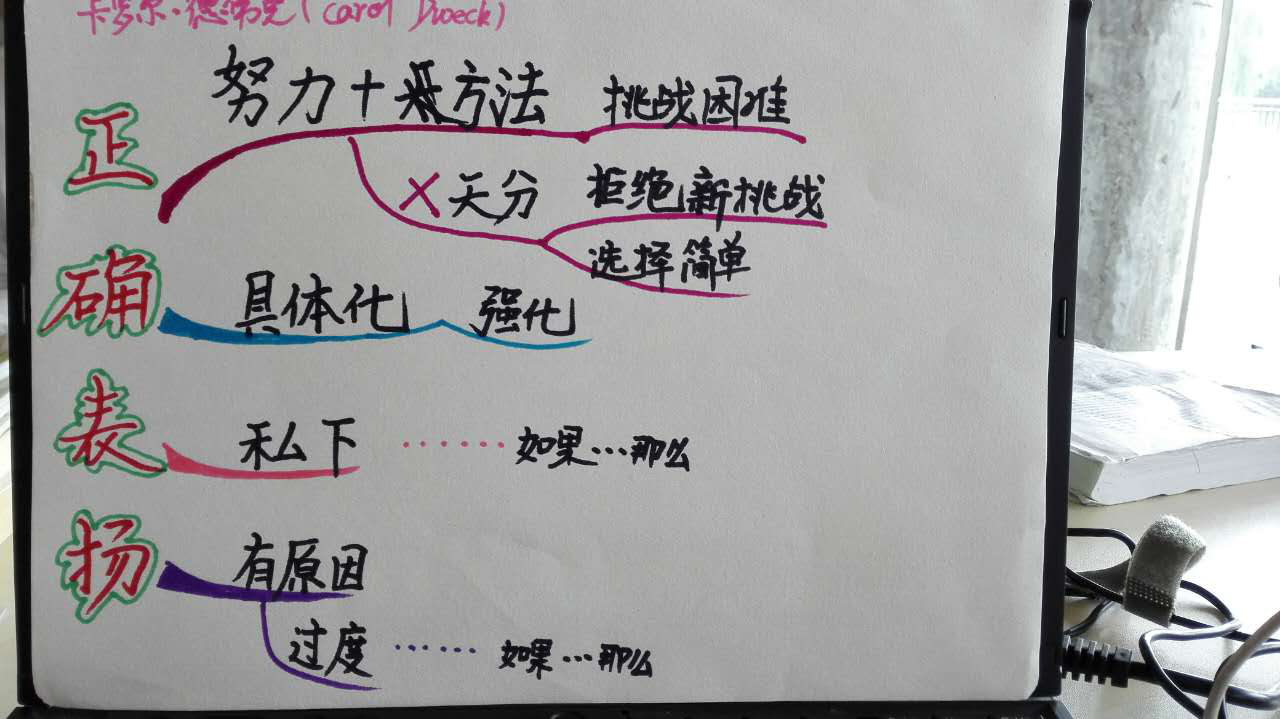 卡罗尔·德韦克(Carol Dweck)
正确表扬
努力+方法 挑战困难
×天分 拒绝新挑战
选择简单
具体化 强化
私下 ······· 如果…那么
有原因
过度 ······ 如果…那么